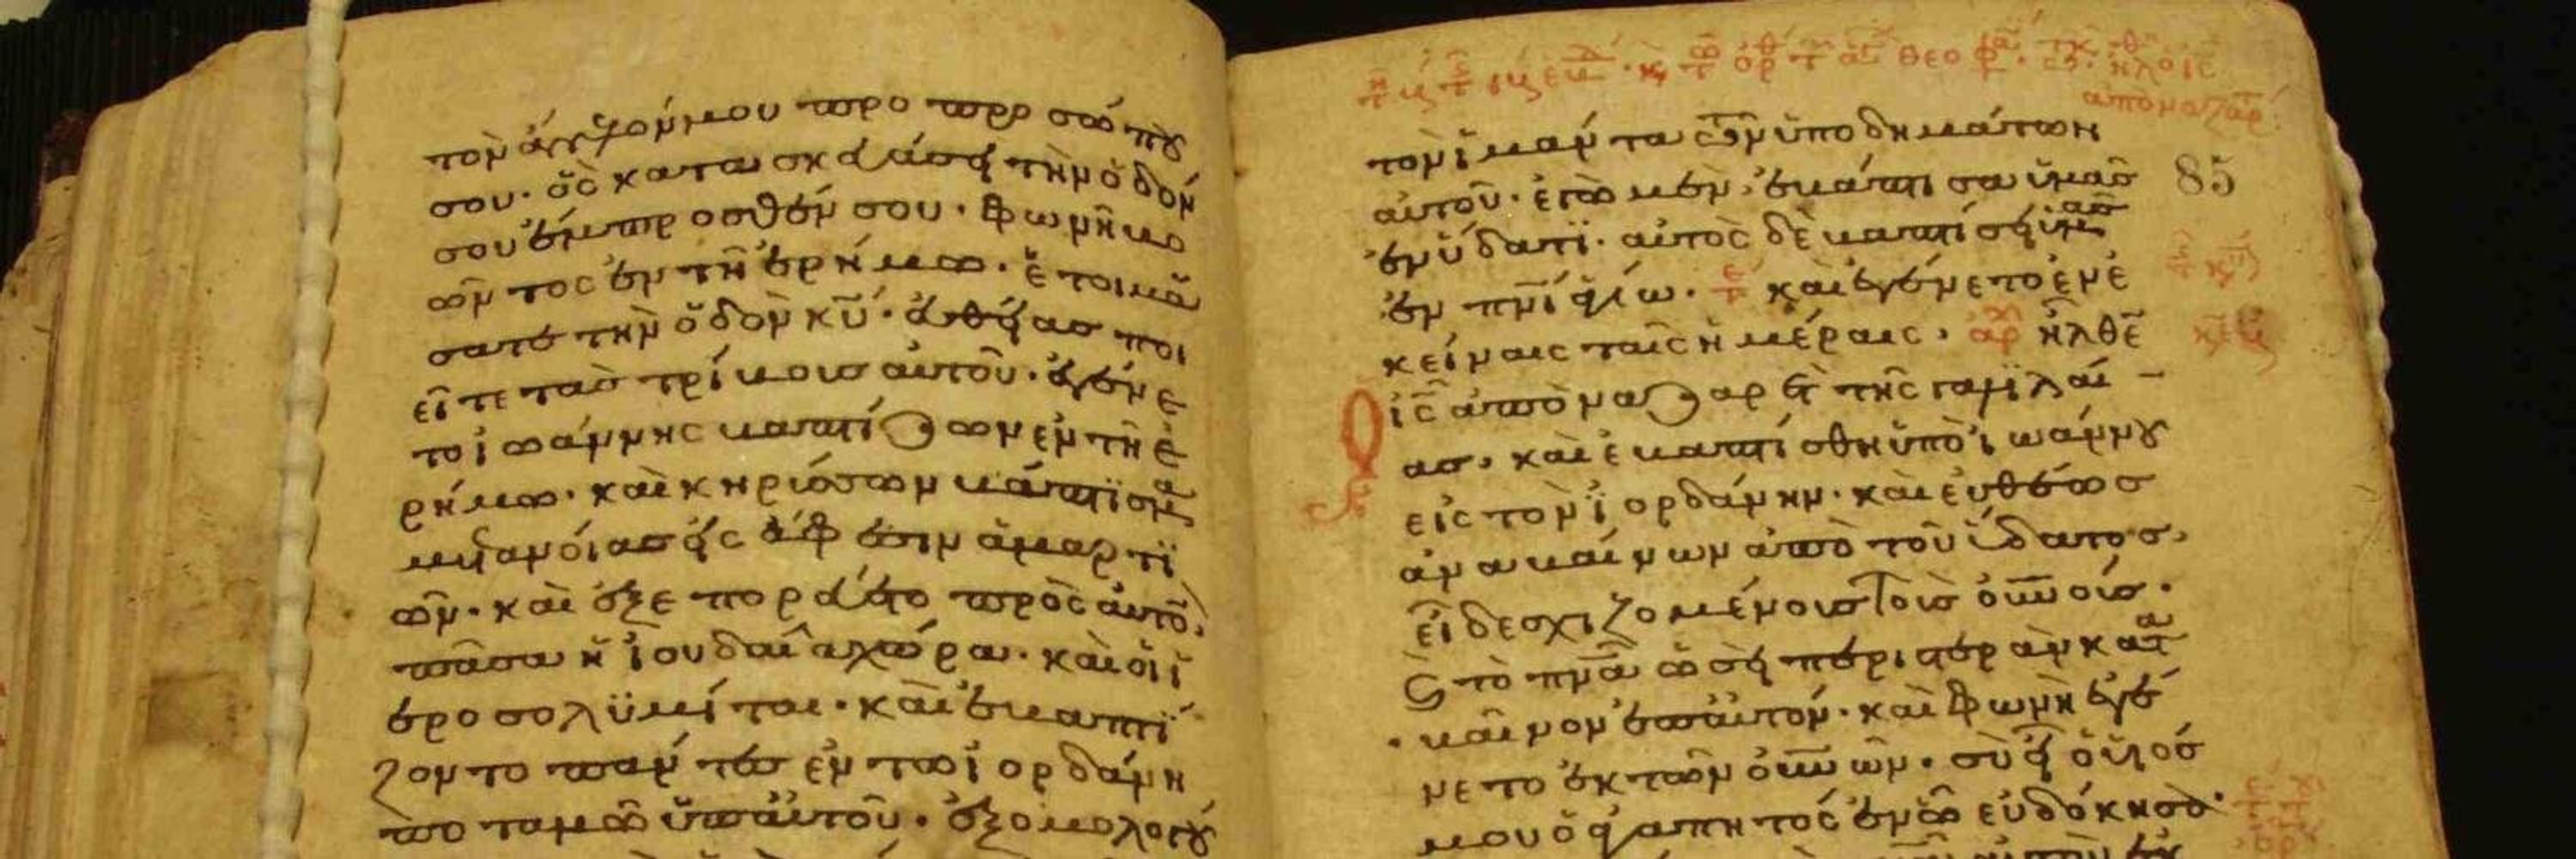 τὸν ἄγγελόν μου προ προσώπου
σου· ὃς κατασκευάσει τὴν ὁδόν
σου ἔμπροσθέν σου· φωνὴ βο
ῶντος ἐν τῇ ἐρήμω· ἑτοιμά
σατε τὴν ὁδὸν κῡ· εὐθείας ποι
εῖτε τὰς τρίβους αὐτοῦ· ἐγένε
το ἰωάννης βαπτίζων ἐν τῇ ἐ
ρήμω· καὶ κηρύσσων βάπτισμα
μετανοίας εἰς ἄφεσιν ἁμαρτι
ῶν· καὶ ἐξεπορεύετο πρὸς αὐτὸ
πᾶσα ἡ ἰουδαία χώρα· καὶ οἱ ἱ
εροσολυμίται· καὶ ἐβαπτί
ζοντο πάντες ἐν τῶ ἰορδάνη
ποταμῶ ὑπ' αὐτοῦ· ἐξομολογού
τὸν ἱμάντα τῶν ὑποδημάτων
αὐτοῦ· ἐγὼ μὲν ἐβάπτισα ὑμᾶς
ἐν ὕδατι· αὐτὸς δὲ βαπτίσει ὑμᾶς
ἐν πνῑ ἁγίω· καὶ ἐγένετο ἐν ἐ
κείναις ταῖς ἡμέραις· ἦλθε
ἰς̄ ἀπὸ ναζαρὲτ τῆς γαλιλαί
ας, καὶ ἐβαπτίσθη ὑπὸ ἰωάννου
εἰς τὸν ἰορδάνην· καὶ εὐθέως
ἀναβαίνων ἀπὸ τοῦ ὕδατος,
εἶδε σχιζομένους τοὺς οὐνους·
καὶ τὸ πνᾱ ὡσεὶ περιστερὰν κατα
βαῖνον ἐπ' αὐτόν· καὶ φωνὴ ἐγέ
νετο ἐκ τῶν οὐνῶν· σὺ εἶ ὁ υἱός
μου ὁ ἀγαπητός ἐν ὧ εὐδόκησα·
85